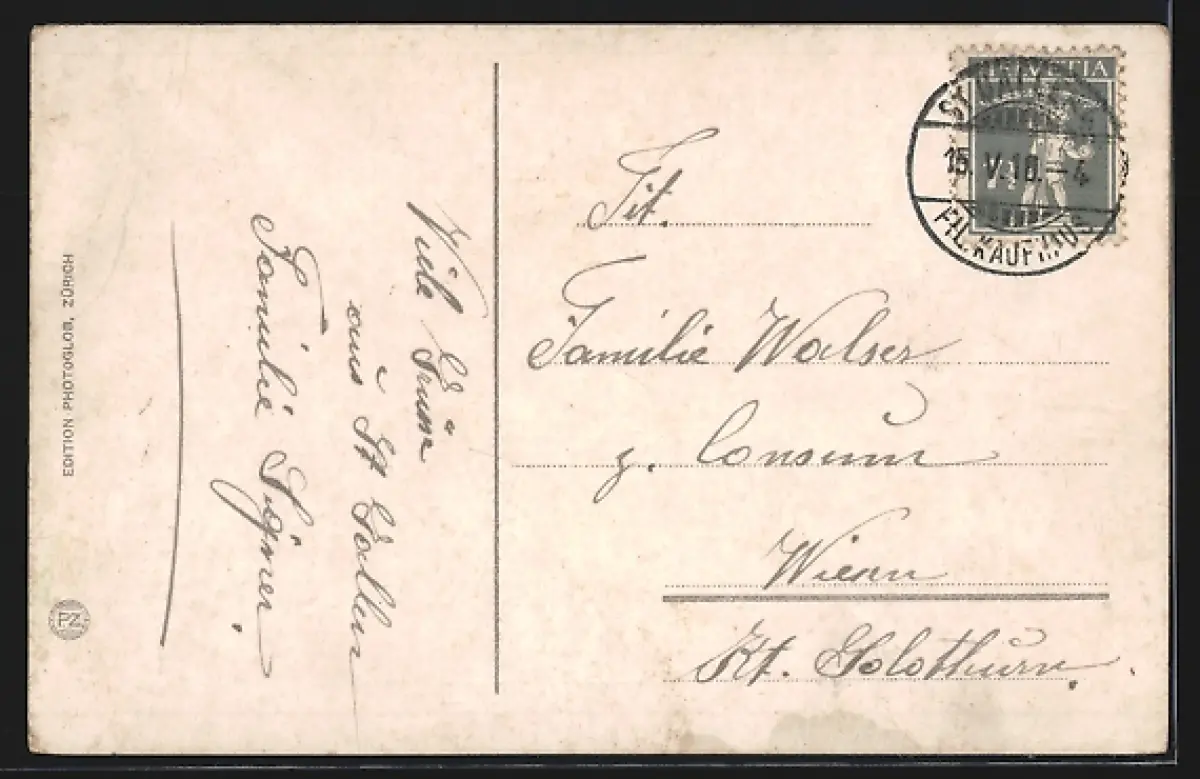 EDITION PHOTOGLOB, ZÜRICH
PZ
Viele Grüsse
aus St Gallen
Familie
HELVETIA
ST. GALLEN
15. V. 18. – 4
FIL. KAUFHAUS
Tit.
Familie Walser
z. Consum
Kt. Solothurn.